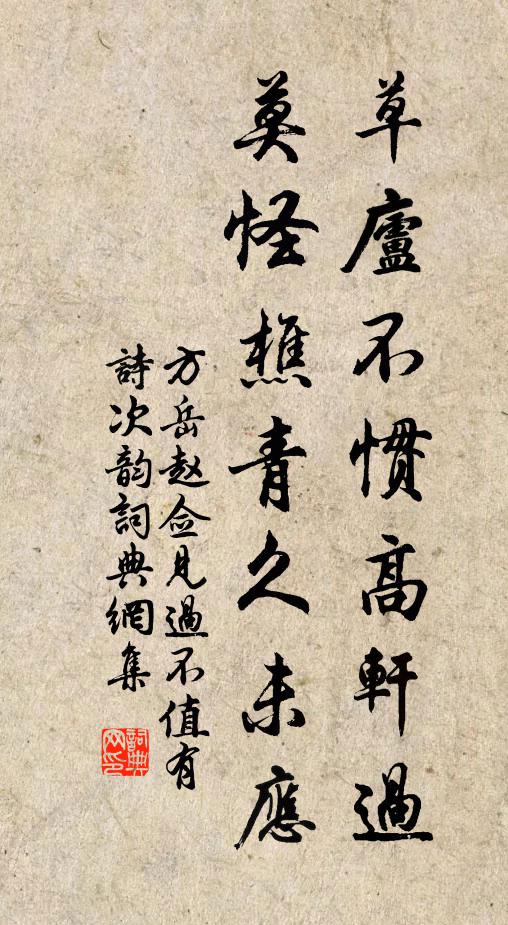 草廬不慣高軒過
莫怪樵青久未應
方岳赵佥見過不值有
詩次韵詞典網集
詞典网印